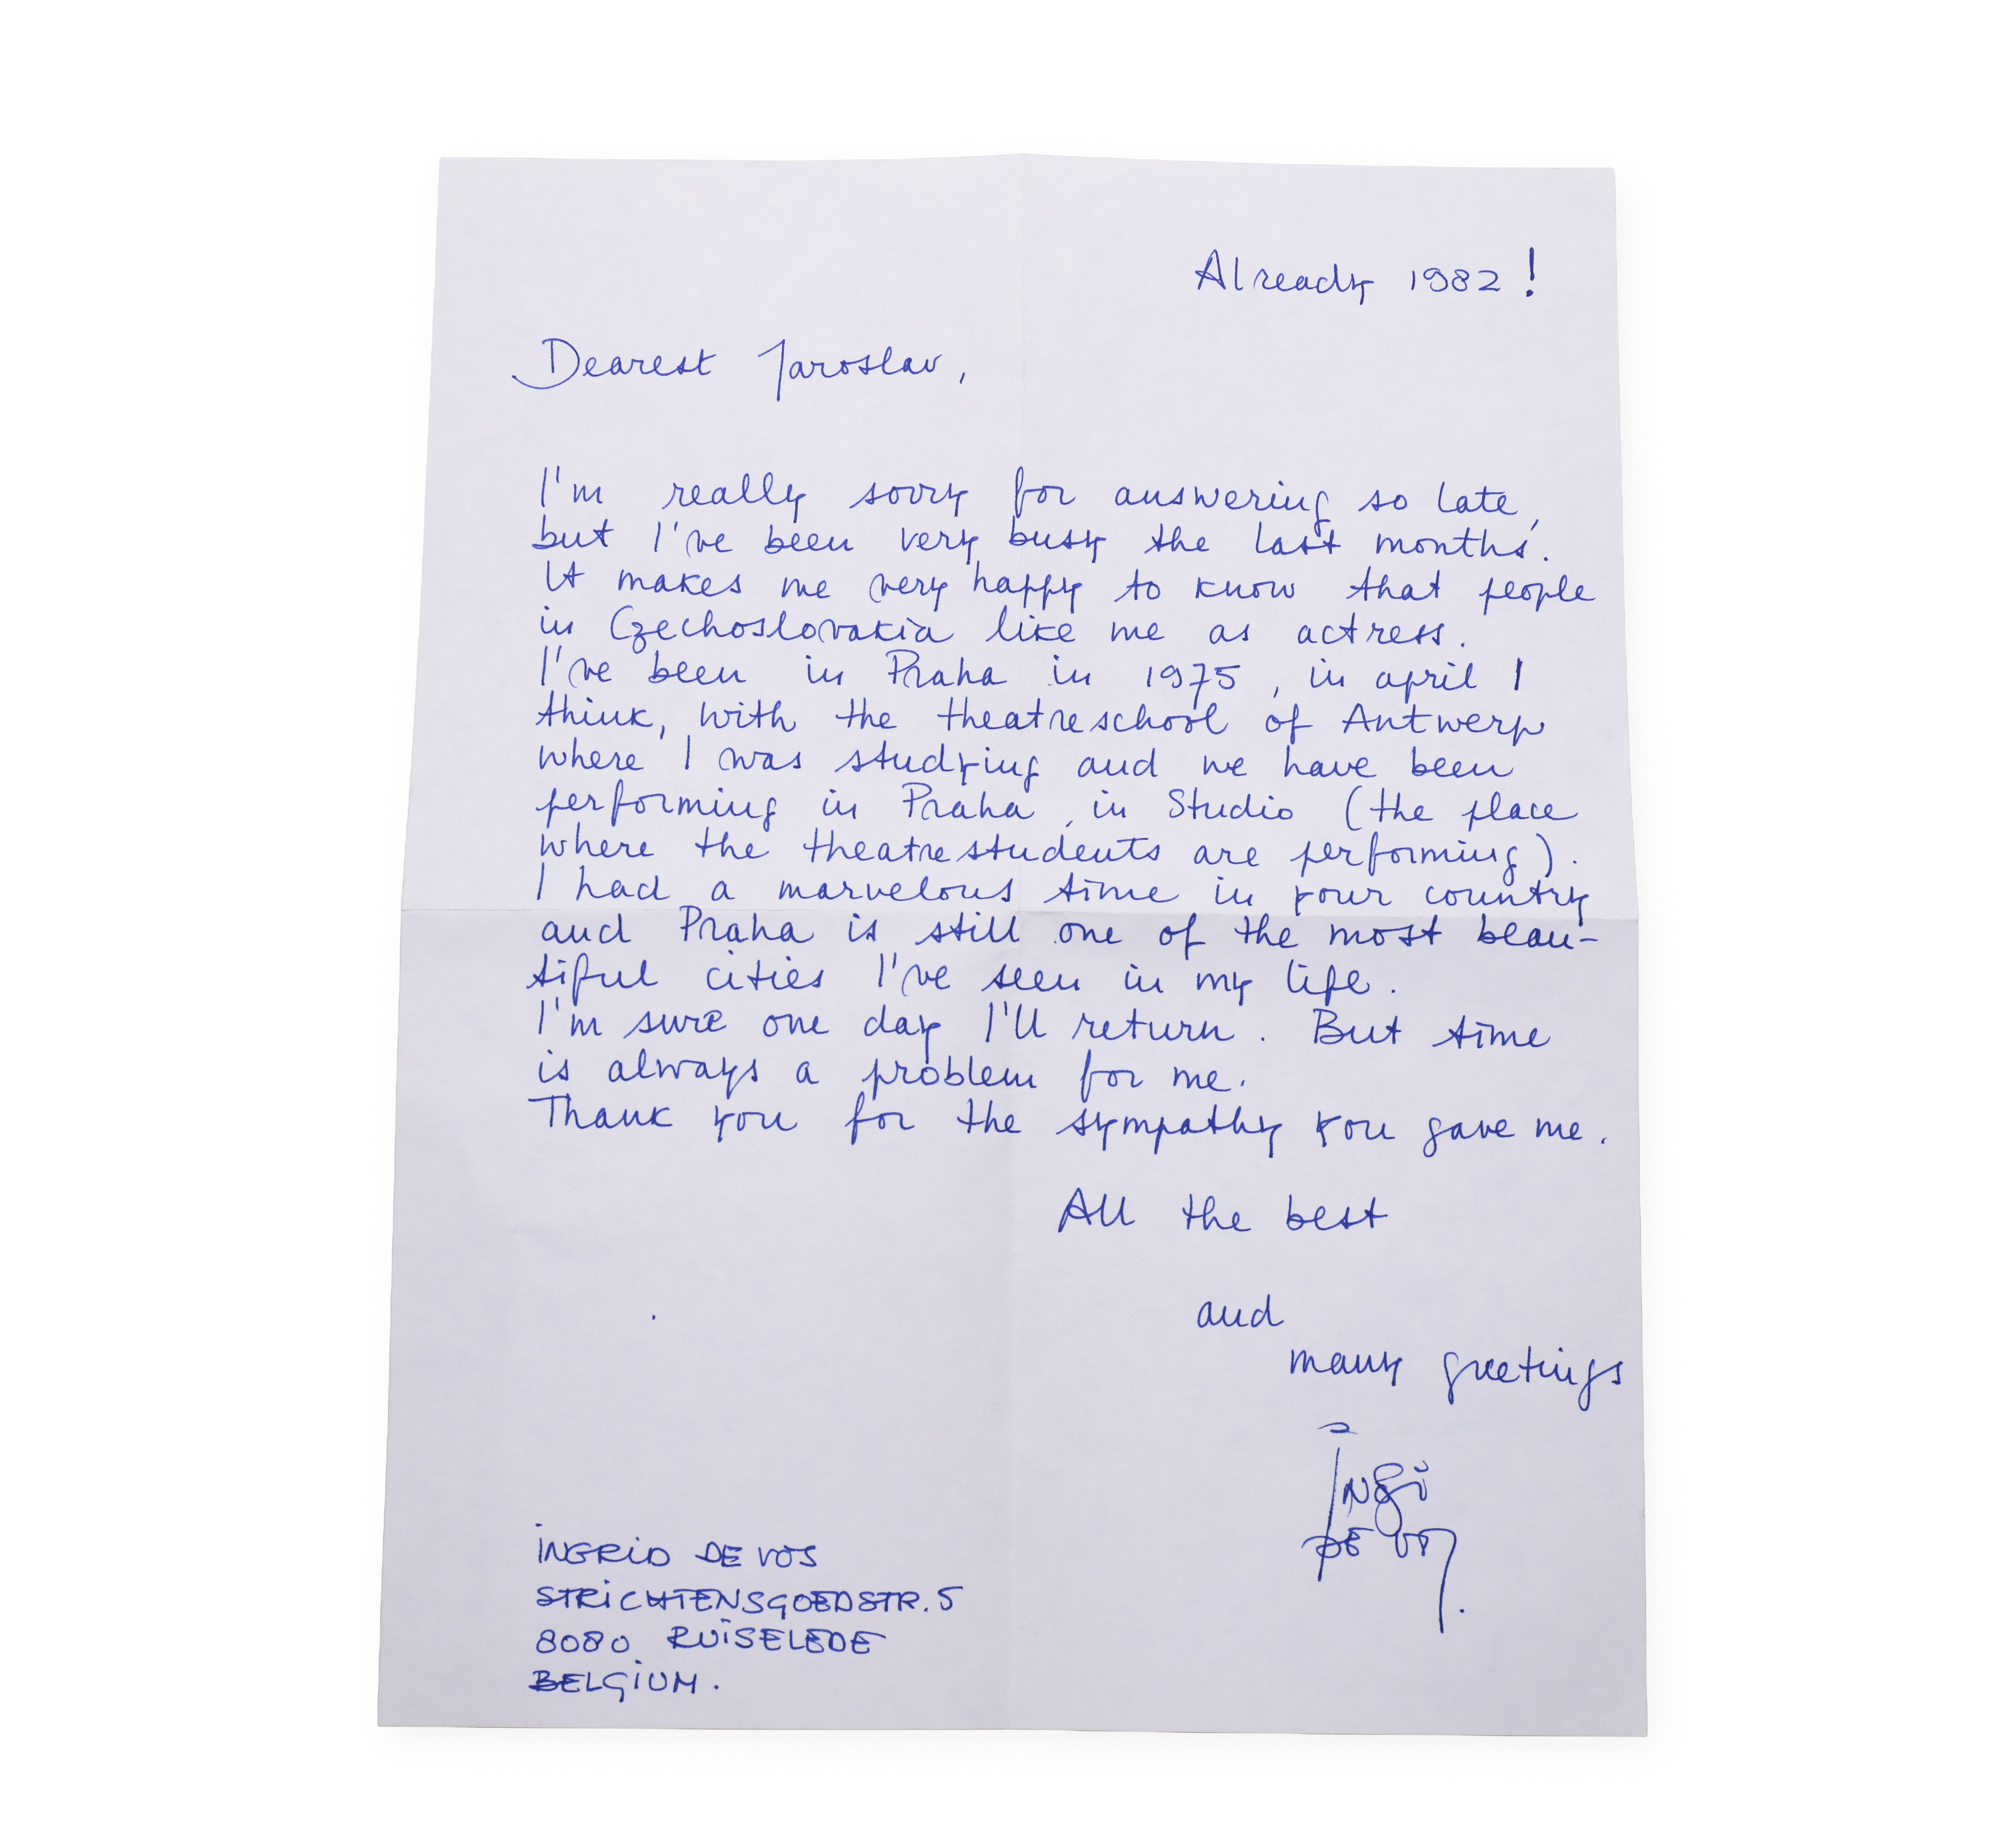 Already 1982 !
Dearest Jaroslav,
I'm really sorry for answering so late,
but I've been very busy the last months.
It makes me very happy to know that people
in Czechoslovakia like me as actress.
I've been in Praha in 1975, in april I
think, with the theatreschool of Antwerp
where I was studying and we have been
performing in Praha, in Studio (the place
where the theatrestudents are performing).
I had a marvelous time in your country
and Praha is still one of the most beau-
tiful cities I've seen in my life.
I'm sure one day I'll return. But time
is always a problem for me.
Thank you for the sympathy you gave me.
All the best
and
many greetings
Ingi
DE VOS.
INGRID DE VOS
STRICHTENSGOEDSTR. 5
8080 RUISELEDE
BELGIUM.